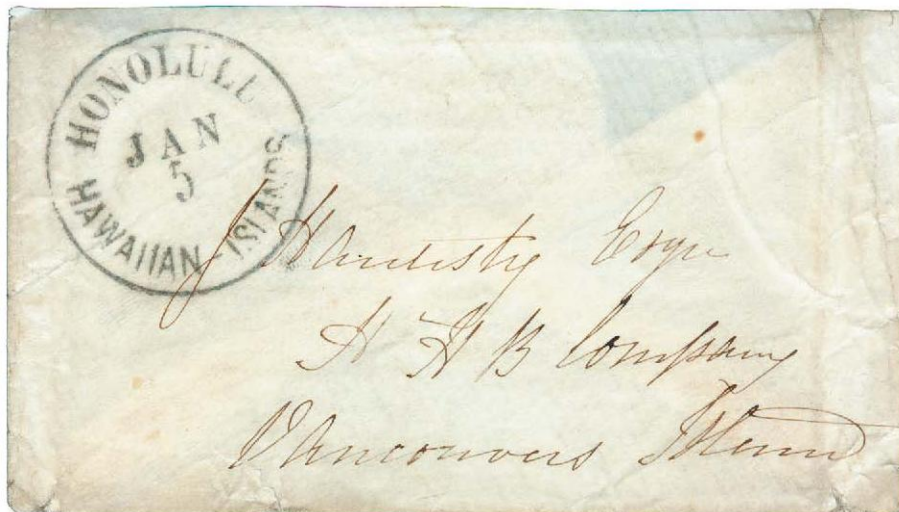 HONOLULU
JAN
5
HAWAIIAN ISLANDS
J Hardisty Esqre
H H B Company
Vancouvers Island